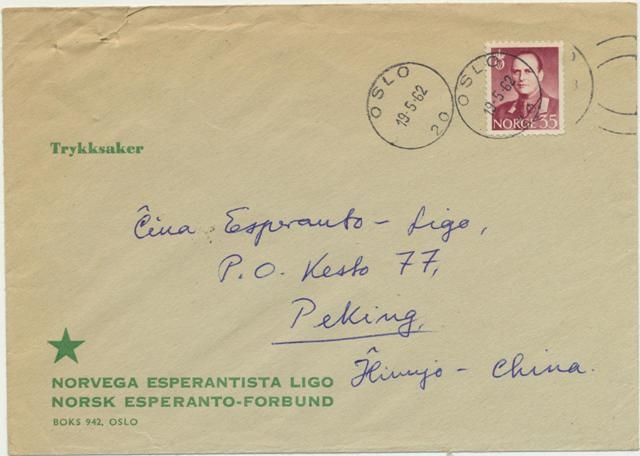 OSLO
19-5-62
20
OSLO
19-5-62
NORGE 35
Trykksaker
Ĉina Esperanto-Ligo,
P.O. Kesto 77,
Peking,
Ĥinujo - China.
NORVEGA ESPERANTISTA LIGO
NORSK ESPERANTO-FORBUND
BOKS 942, OSLO